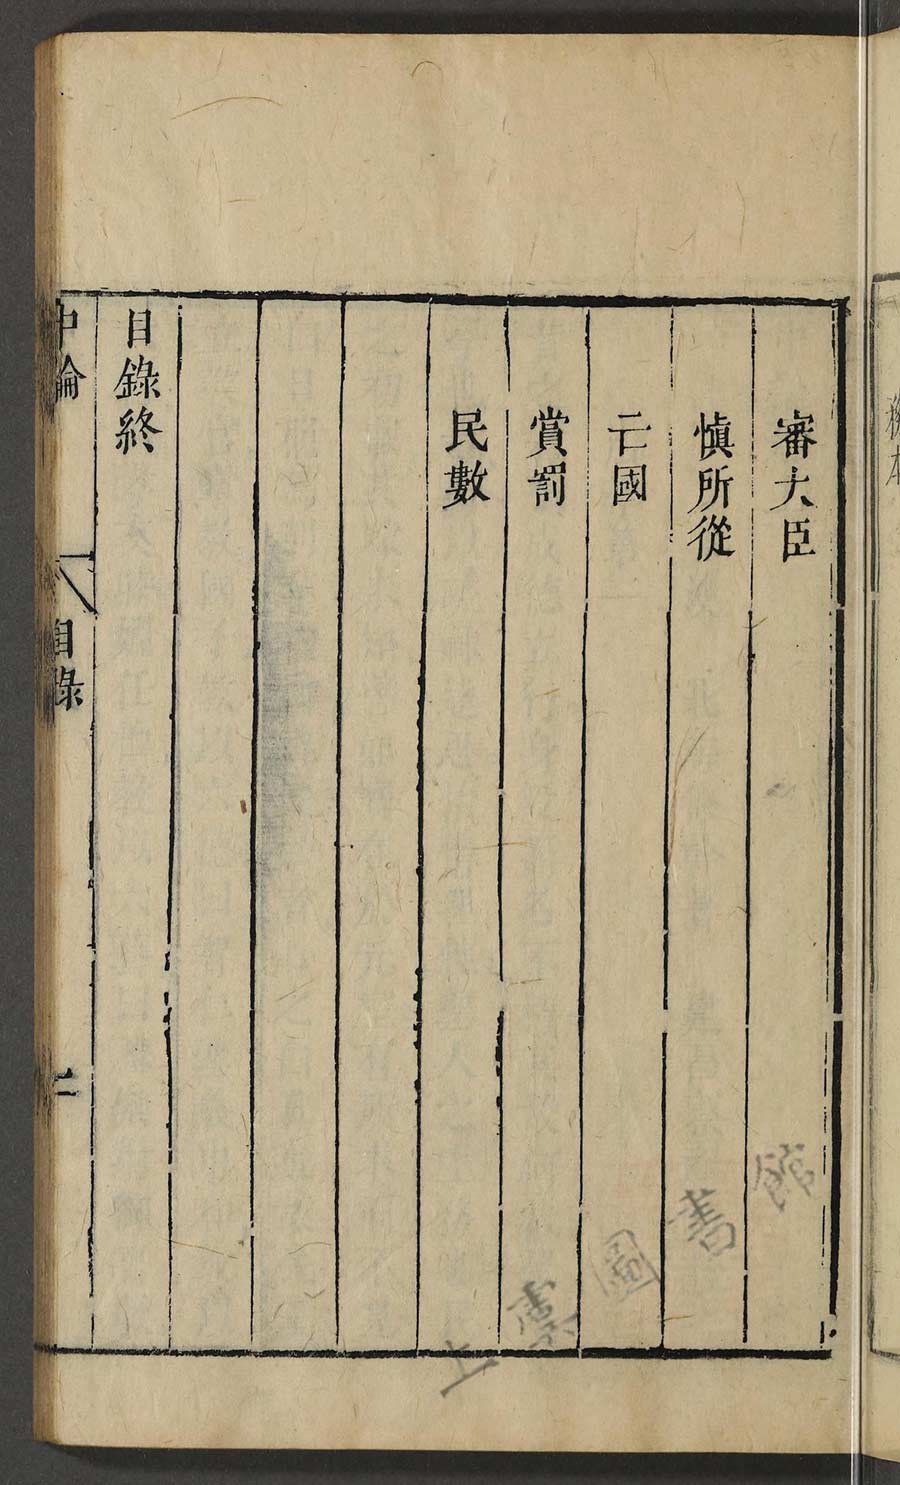 審大臣
愼所從
亡國
賞罰
民數
目錄終
中論
目錄
二
上虞圖書館